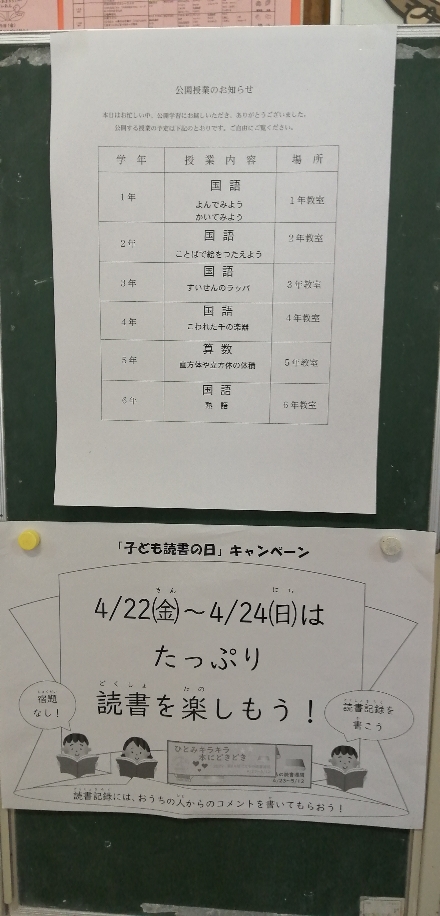 公開授業のお知らせ
本日はお忙しい中、公開学習にお越しいただき、ありがとうございました。
公開する授業の予定は下記のとおりです。ご自由にご覧ください。
学年 授業内容 場所
1年 国語 よんでみよう かいてみよう 1年教室
2年 国語 ことばで絵をつたえよう 2年教室
3年 国語 すいせんのラッパ 3年教室
4年 国語 こわれた千の楽器 4年教室
5年 算数 直方体や立方体の体積 5年教室
6年 国語 熟語 6年教室
「子ども読書の日」キャンペーン
4/22(金)～4/24(日)は
たっぷり
読書を楽しもう！
宿題
なし！
読書記録を
書こう
ひとみキラキラ
本にどきどき
読書記録には、おうちの人からのコメントを書いてもらおう！